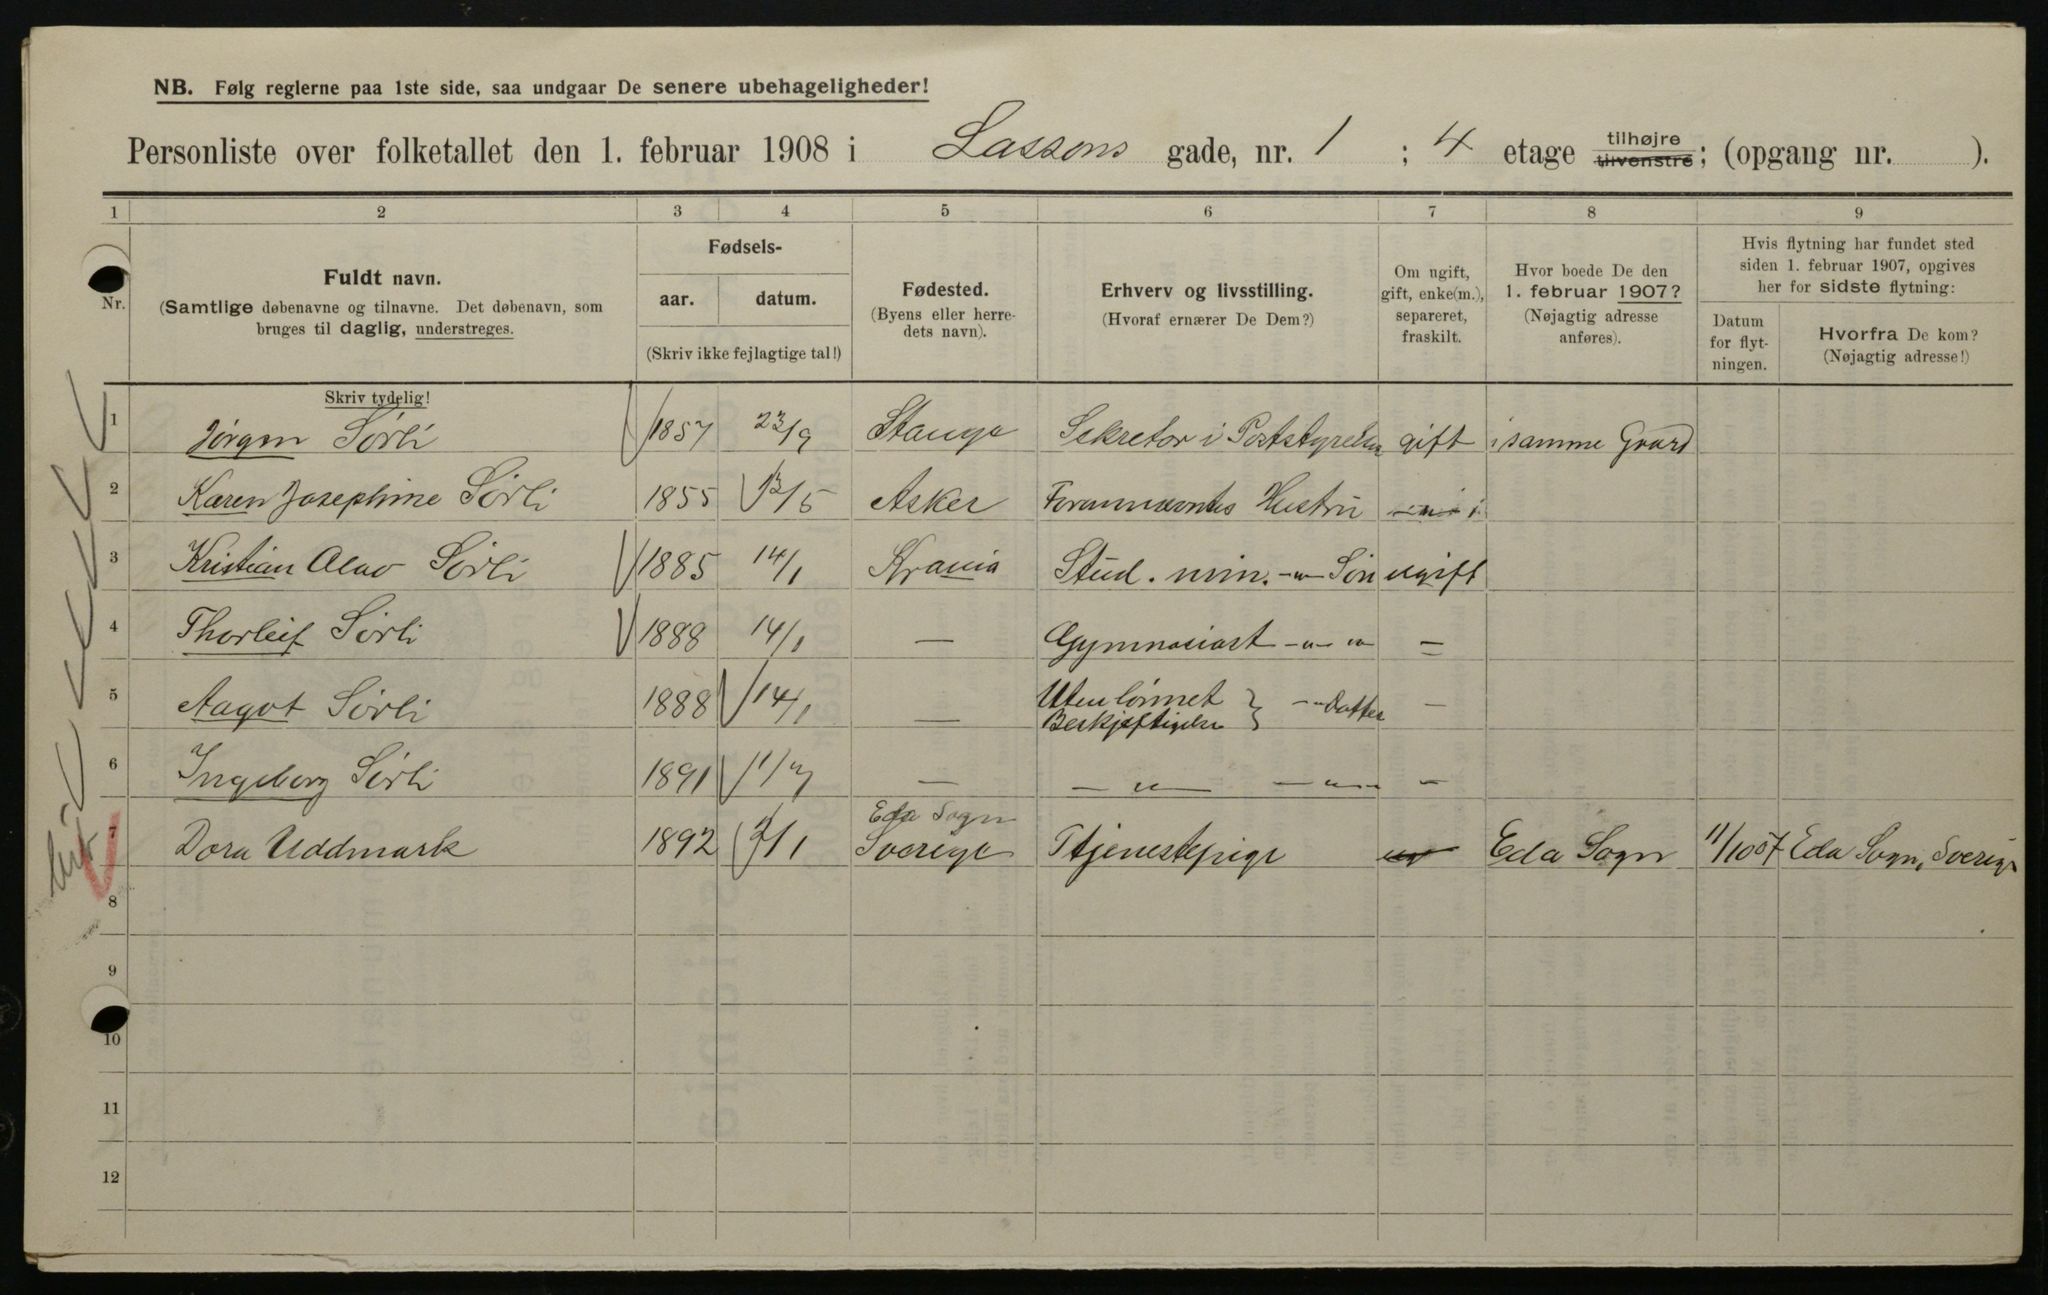 NB. Følg reglerne paa 1ste side, saa undgaar De senere ubehageligheder!
Personliste over folketallet den 1. februar 1908 i Lassons gade, nr. 1 ; 4 etage tilhøjre tilvenstre; (opgang nr. ).
1 2 3 4 5 6 7 8 9
Nr.
Fuldt navn.
(Samtlige døbenavne og tilnavne. Det døbenavn, som
bruges til daglig, understreges.
Skriv tydelig!
Fødsels-
aar. datum.
(Skriv ikke fejlagtige tal!)
Fødested.
(Byens eller herre-
dets navn).
Erhverv og livsstilling.
(Hvoraf ernærer De Dem?)
Om ugift,
gift, enke(m.),
separeret,
fraskilt.
Hvor boede De den
1. februar 1907?
(Nøjagtig adresse
anføres).
Hvis flytning har fundet sted
siden 1. februar 1907, opgives
her for sidste flytning:
Datum
for flyt-
ningen.
Hvorfra De kom?
(Nøjagtig adresse!)
1 Jørgen Sörli 1857 23/9 Stange Sekretær i Poststyrelsen gift i samme Gaard
2 Karen Josephine Sörli 1855 13/5 Asker Forannævntes Hustru
3 Kristian Olav Sörli 1885 14/1 Krania Stud. min. -„- Sön ugift
4 Thorleif Sörli 1888 14/1 — Gymnasiast -„- „ =
5 Aagot Sörli 1888 14/1 — Uten lönnet
Beskjæftigelse } -„- Datter -
6 Ingeborg Sörli 1891 — -„- -„- -
7 Dora Uddmark 1892 Eda Sogn
Sverige Tjenestepige Eda Sogn 11/10 07 Eda Sogn, Sverige
8
9
10
11
12